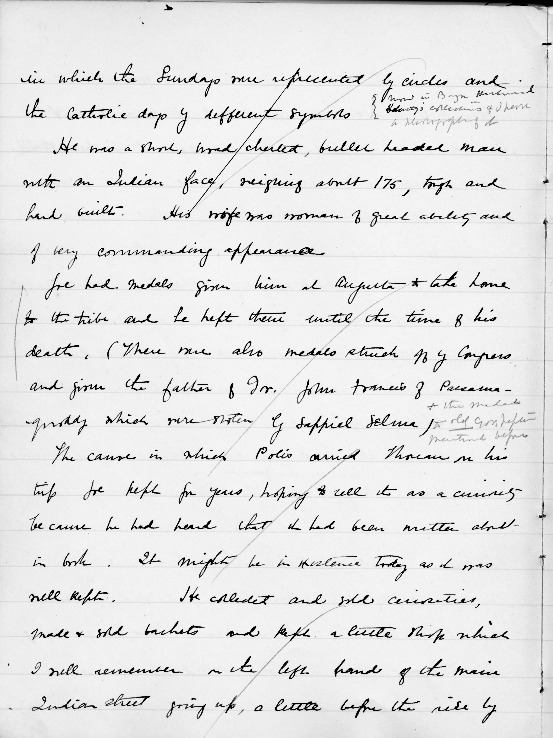 in which the Sundays were represented by circles and
the Catholic days by different symbols
now in Bryn
collection & I have
a photograph of it
He was a short, broad chested, bullet headed man
with an Indian face, weighing about 175, tough and
hard built. His wife was woman of great ability and
of very commanding appearance
Joe had medals given him at Augusta to take home
to the tribe and he kept them until the time of his
death. (There were also medals struck off by Congress
and given the father of Gov. John Francis of Passama-
quoddy which were stolen by Sappiel Selma)
+ the medals
to old Gov.
mentioned before
The canoe in which Polis carried Thoreau on his
trip Joe kept for years, hoping to sell it as a curiosity
because he had heard that it had been written about
in book. It might be in existence today as it was
well kept. He collected and sold curiosities,
made & sold baskets and kept a little shop which
I well remember on the left hand of the main
Indian street going up, a little before the rise by